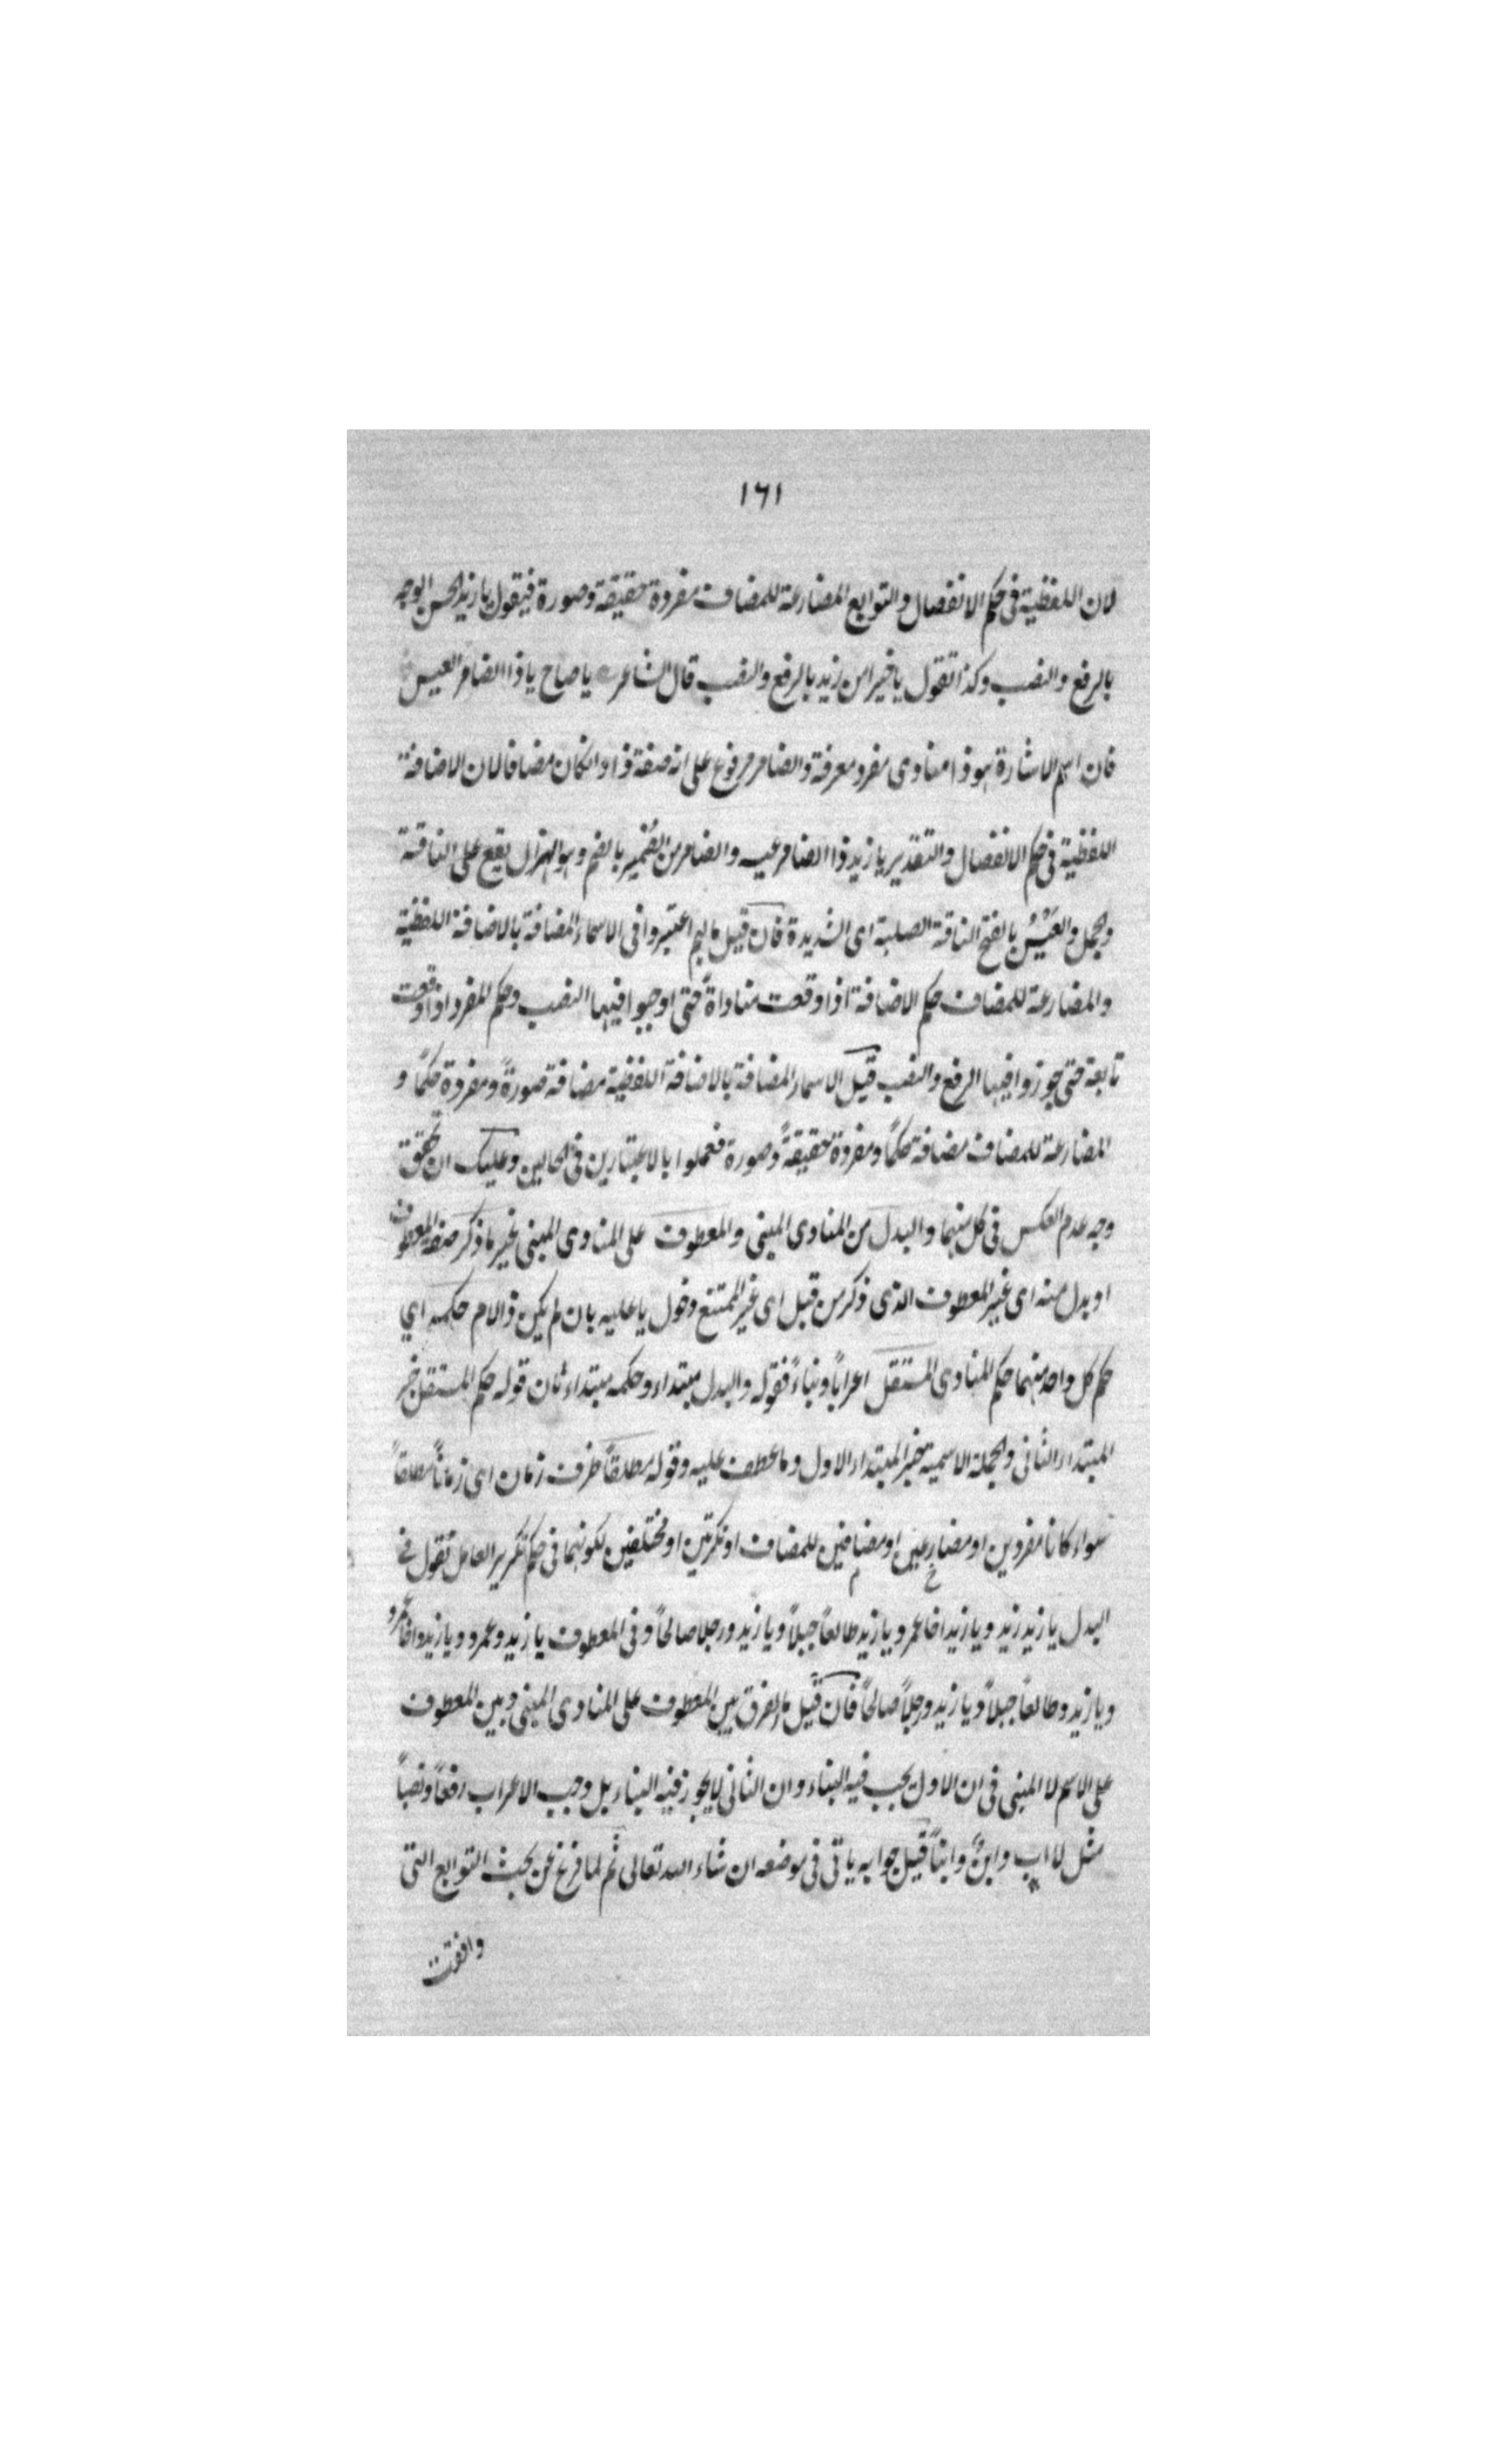 ١٦١
لان اللفظية فى حكم الانفصال والتوابع المضارعة للمضاف مفردة حقيقة وصورة فيقول يا زيد الحسن الوجه
بالرفع والنصب وكذا تقول يا خيرا من زيد بالرفع والنصب قال الشاعر يا صاح يا ذا الضامر العيس
فان اسم الاشارة هو ذا منادى مفرد معرفة والضامر مرفوع على انه صفة ذا وانكان مضافا لان الاضافة
اللفظية فى حكم الانفصال والتقدير يا زيد ذا الضامر عيسه والضامر من الضمر بالضم وهو الهزال يقع على الناقة
والجمل والعَيْسُ بالفتح الناقة الصلبة اى الشديدة فان قيل ما لهم اعتبروا فى الاسماء المضافة بالاضافة اللفظية
والمضارعة للمضاف حكم الاضافة اذا وقعت مناداةً حتى اوجبوا فيهما النصب وحكم المفرد اذا وقعت
تابعة حتى جوزوا فيها الرفع والنصب قيل الاسماء المضافة بالاضافة اللفظية مضافة صورةً ومفردة حكمًا و
المضارعة للمضاف مضافة حكمًا ومفردة حقيقةً وصورة فعملوا بالاعتبارين فى الحالين وعليك ان تحقق
وجه عدم العكس فى كل منهما والبدل من المنادى المبنى والمعطوف على المنادى المبنى غير ما ذكر صفة المعطوف
او بدل منه اى غير المعطوف الذى ذكر من قبل اى غير الممتنع دخول يا عليه بان لم يكن ذا لام حكمه اي
حكم كل واحد منهما حكم المنادى المستقل اعرابًا وبناءً فقوله والبدل مبتداء وحكمه مبتداء ثان قوله حكم المستقل خبر
المبتداء الثانى والجملة الاسمية خبر المبتداء الاول وما عطف عليه وقوله مطلقًا ظرف زمان اى زمانًا مطلقًا
سواء كانا مفردين او مضارعين او مضافين للمضاف او نكرتين او مختلفين لكونهما فى حكم تكرير العامل تقول فى
البدل يا زيد زيد ويا زيد اخا عمرو يا زيد طالعًا جبلاً ويا زيد ورجلا صالحًا وفى المعطوف يا زيد وعمرو ويا زيد واخا عمرو
ويا زيد وطالعًا جبلاً ويا زيد ورجلاً صالحًا فان قيل ما الفرق بين المعطوف على المنادى المبنى وبين المعطوف
على الاسم لا المبنى فى ان الاول يجب فيه البناء وان الثانى لا يجوز فيه البناء بل وجب الاعراب رفعًا ونصبًا
مثل لا اب وابنٌ وابنًا قيل جوابه ياتى فى موضعه ان شاء الله تعالى ثم لما فرغ عن بحث التوابع التى
وافقت